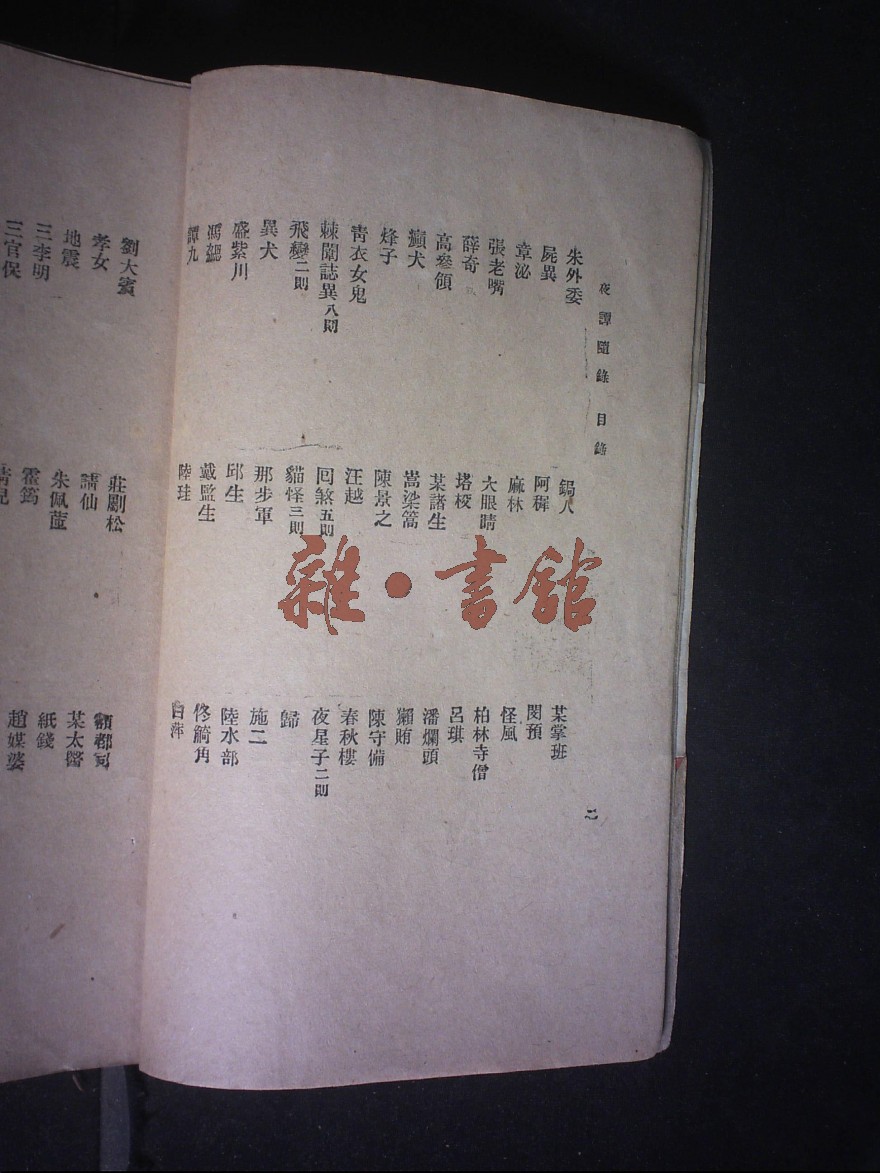 夜譚隨錄 目錄
二
朱外委 鍚人 某掌班
屍異 阿稺 閔預
章泌 麻林 怪風
張老嘴 大眼睛 柏林寺僧
薛奇 塔校 呂琪
高參領 某諸生 潘爛頭
癲犬 嵩梁篙 獺賄
烽子 陳景之 陳守備
青衣女鬼 汪越 春秋樓
棘闈誌異八則 回煞五則 夜星子二則
飛變二則 貓怪三則 歸
異犬 那步軍 施二
盛紫川 邱生 陸水部
馮勰 戴監生 佟觭角
譚九 陸珪 白萍
劉大賓 莊劚松 額都司
孝女 請仙 某太醫
地震 朱佩茝 紙錢
三李明 霍筠 趙媒婆
三官保
雜·書館